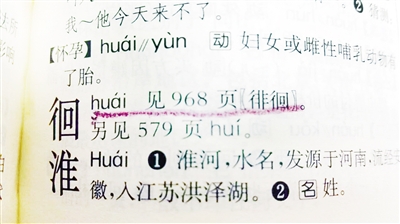 我～他今天来不了。❷
【怀孕】huái∥yùn 动 妇女或雌性哺乳动物有
了胎。
徊 huái 见968页〖徘徊〗。
另见579页huí。
淮 Huái ❶ 淮河,水名,发源于河南,流经安
徽,入江苏洪泽湖。❷ 名 姓。